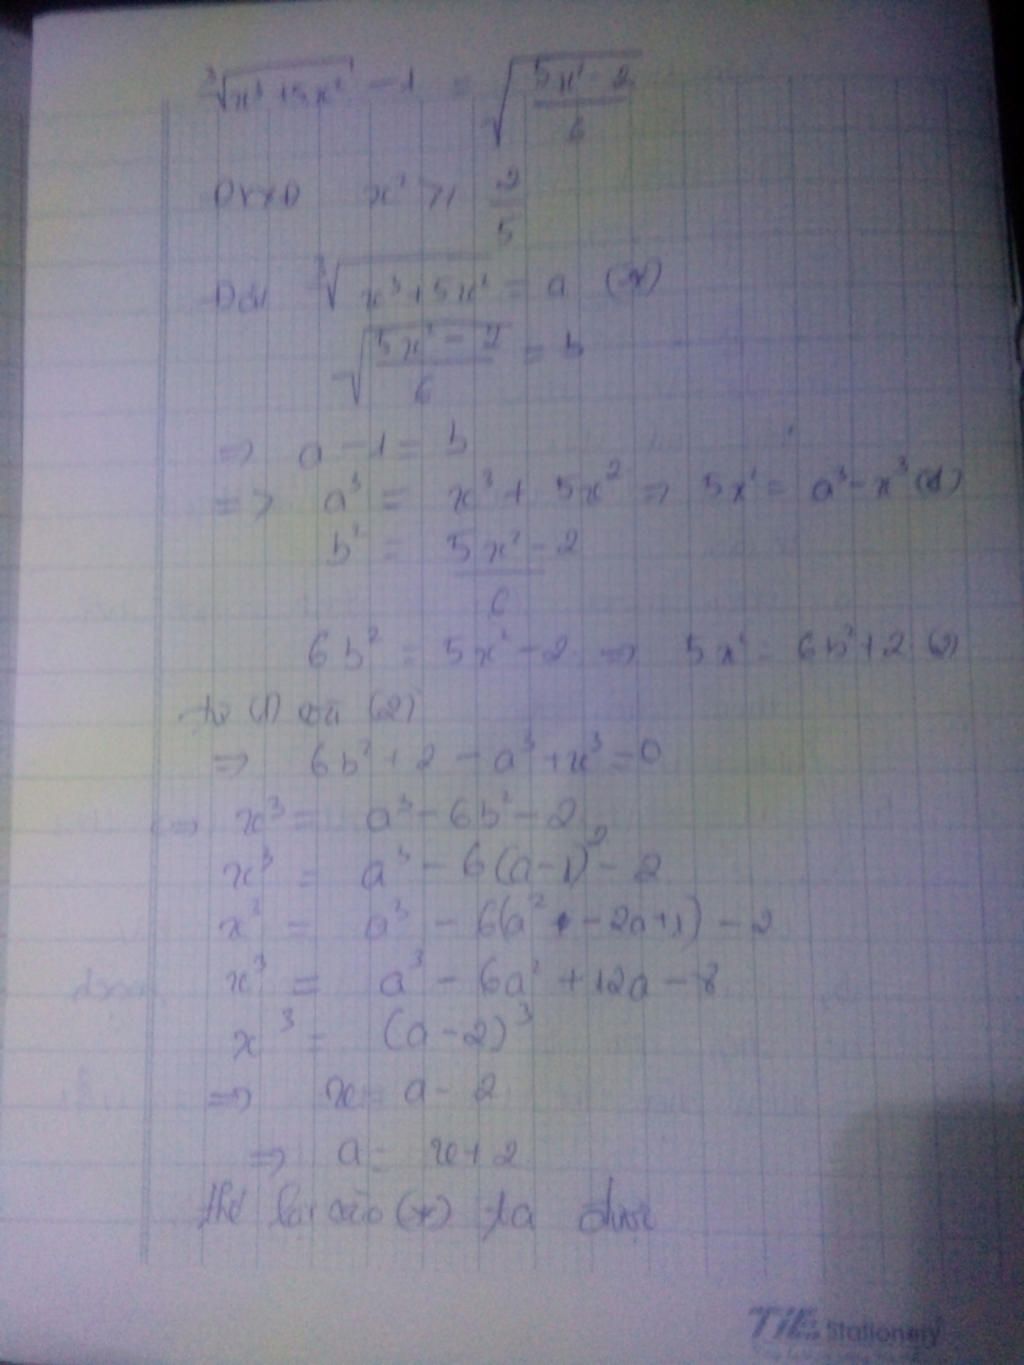 ∛(x³ + 5x²) - 1 = √((5x² - 2)/6)
ĐKXĐ x² ≥ 2/5
Đặt ∛(x³ + 5x²) = a (*)
√((5x² - 2)/6) = b
=> a - 1 = b
=> a³ = x³ + 5x² => 5x² = a³ - x³ (1)
b² = (5x² - 2)/6
6b² = 5x² - 2 => 5x² = 6b² + 2 (2)
từ (1) và (2)
=> 6b² + 2 - a³ + x³ = 0
<=> x³ = a³ - 6b² - 2
x³ = a³ - 6(a-1)² - 2
x³ = a³ - 6(a² - 2a + 1) - 2
x³ = a³ - 6a² + 12a - 8
x³ = (a-2)³
=> x = a - 2
=> a = x + 2
thế lại vào (*) ta được
TiE Stationery